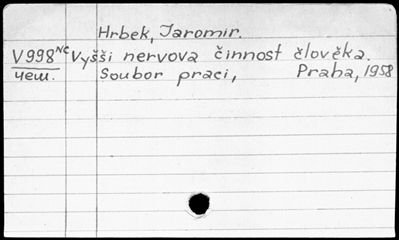 Hrbek, Jaromir.
V998 NČ Vyšši nervova činnost člověka.
чеш. Soubor praci, Praha, 1958